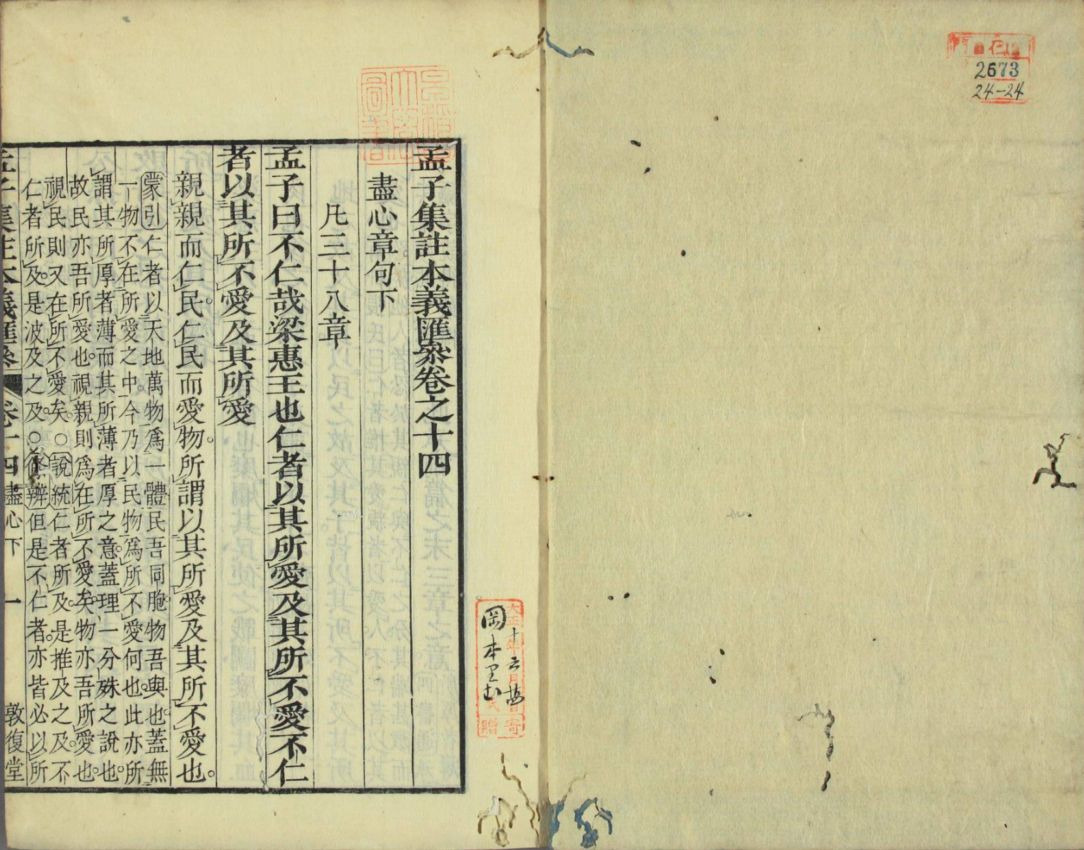 2673
24-24
岡本
孟子集註本義匯叅卷之十四
盡心章句下
凡三十八章
孟子曰不仁哉梁惠王也仁者以其所愛及其所不愛不仁
者以其所不愛及其所愛
親親而仁民仁民而愛物。所謂以其所愛及其所不愛也。
蒙引仁者以天地萬物爲一體民吾同胞物吾與也蓋無
一物不在所愛之中今乃以民物爲所不愛何也此亦所
謂其所厚者薄而其所薄者厚之意蓋理一分殊之說也。
故民亦吾所愛也。視親則爲在所不愛矣物亦吾所愛也
視民則又在所不愛矣。○說統仁者所及是推及之及不
仁者所及。是波及之及。○條辨但是不仁者。亦皆必以所
孟子集註本義匯叅 卷十四 盡心下 一 敦復堂